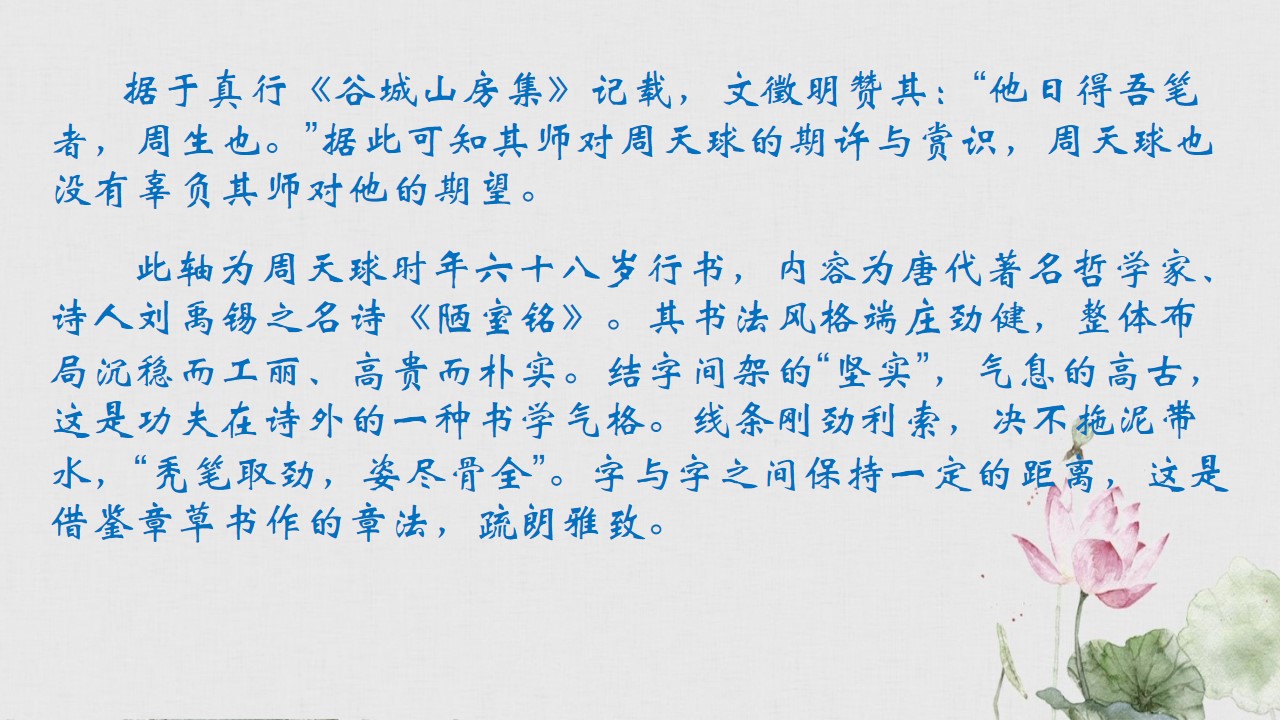 据于真行《谷城山房集》记载，文徵明赞其：“他日得吾笔
者，周生也。”据此可知其师对周天球的期许与赏识，周天球也
没有辜负其师对他的期望。
此轴为周天球时年六十八岁行书，内容为唐代著名哲学家、
诗人刘禹锡之名诗《陋室铭》。其书法风格端庄劲健，整体布
局沉稳而工丽、高贵而朴实。结字间架的“坚实”，气息的高古，
这是功夫在诗外的一种书学气格。线条刚劲利索，决不拖泥带
水，“秃笔取劲，姿尽骨全”。字与字之间保持一定的距离，这是
借鉴章草书作的章法，疏朗雅致。